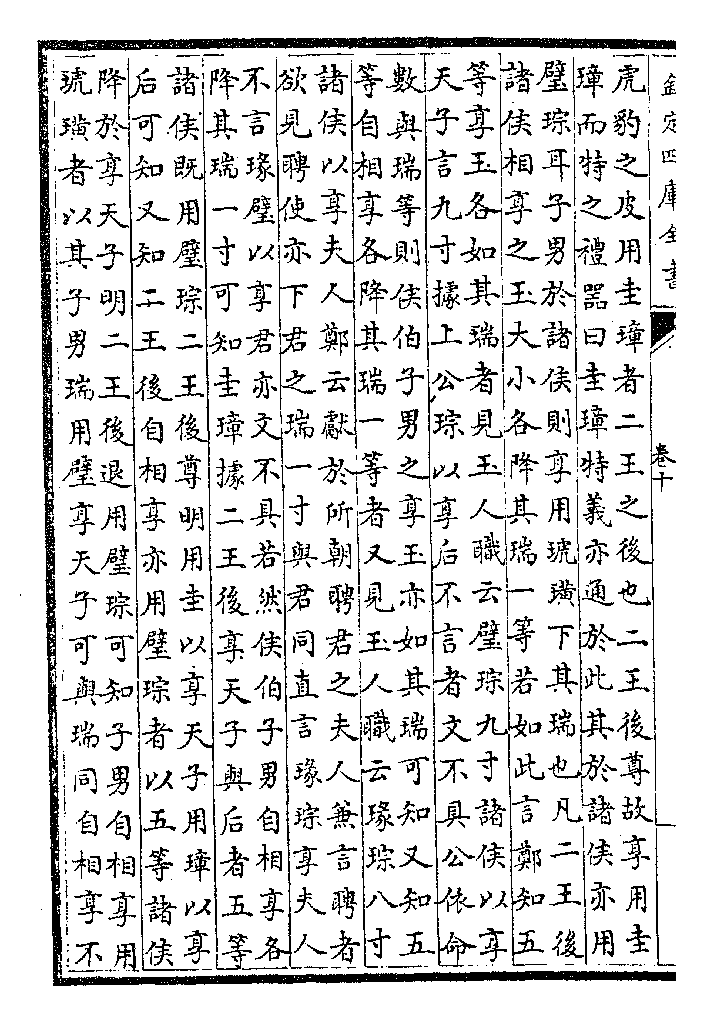 欽定四庫全書
卷十
虎豹之皮用圭璋者二王之後也二王後尊故享用圭
璋而特之禮器曰圭璋特義亦通於此其於諸侯亦用
璧琮耳子男於諸侯則享用琥璜下其瑞也凡二王後
諸侯相享之玉大小各降其瑞一等若如此言鄭知五
等享玉各如其瑞者見玉人職云璧琮九寸諸侯以享
天子言九寸據上公琮以享后不言者文不具公依命
數與瑞等則侯伯子男之享玉亦如其瑞可知又知五
等自相享各降其瑞一等者又見玉人職云瑑琮八寸
諸侯以享夫人鄭云獻於所朝聘君之夫人兼言聘者
欲見聘使亦下君之瑞一寸與君同直言瑑琮享夫人
不言瑑璧以享君亦文不具若然侯伯子男自相享各
降其瑞一寸可知圭璋據二王後享天子與后者五等
諸侯既用璧琮二王後尊明用圭以享天子用璋以享
后可知又知二王後自相享亦用璧琮者以五等諸侯
降於享天子明二王後退用璧琮可知子男自相享用
琥璜者以其子男瑞用璧享天子可與瑞同自相享不